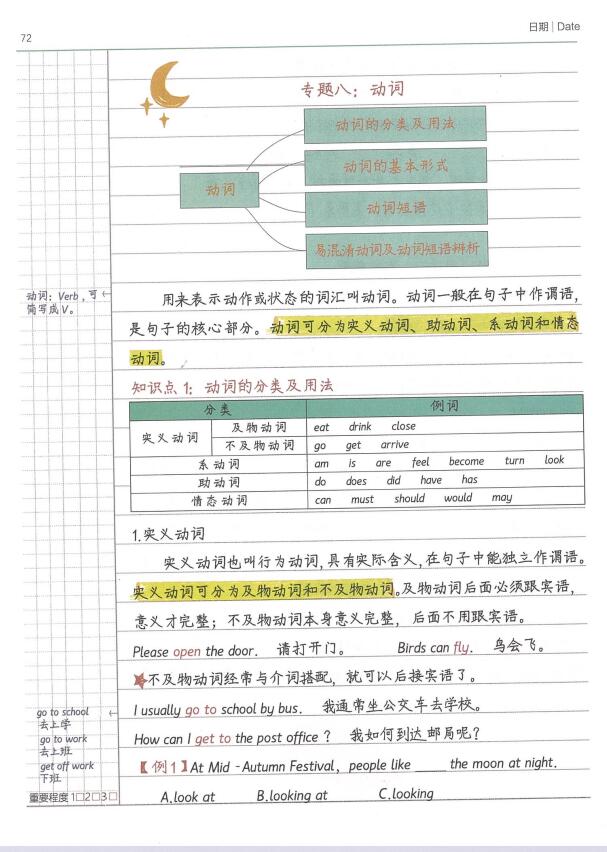 72
日期 | Date
专题八：动词
动词
动词的分类及用法
动词的基本形式
动词短语
易混淆动词及动词短语辨析
动词：Verb，可
简写成V。
用来表示动作或状态的词汇叫动词。动词一般在句子中作谓语，
是句子的核心部分。动词可分为实义动词、助动词、系动词和情态
动词。
知识点1：动词的分类及用法
分类 例词
实义动词 及物动词 eat drink close
不及物动词 go get arrive
系动词 am is are feel become turn look
助动词 do does did have has
情态动词 can must should would may
1.实义动词
实义动词也叫行为动词,具有实际含义,在句子中能独立作谓语。
实义动词可分为及物动词和不及物动词。及物动词后面必须跟宾语，
意义才完整；不及物动词本身意义完整，后面不用跟宾语。
Please open the door. 请打开门。 Birds can fly. 鸟会飞。
★不及物动词经常与介词搭配，就可以后接宾语了。
I usually go to school by bus. 我通常坐公交车去学校。
How can I get to the post office？ 我如何到达邮局呢？
【例1】At Mid -Autumn Festival，people like ____ the moon at night.
A.look at B.looking at C.looking
go to school
去上学
go to work
去上班
get off work
下班
重要程度 1□2□3□